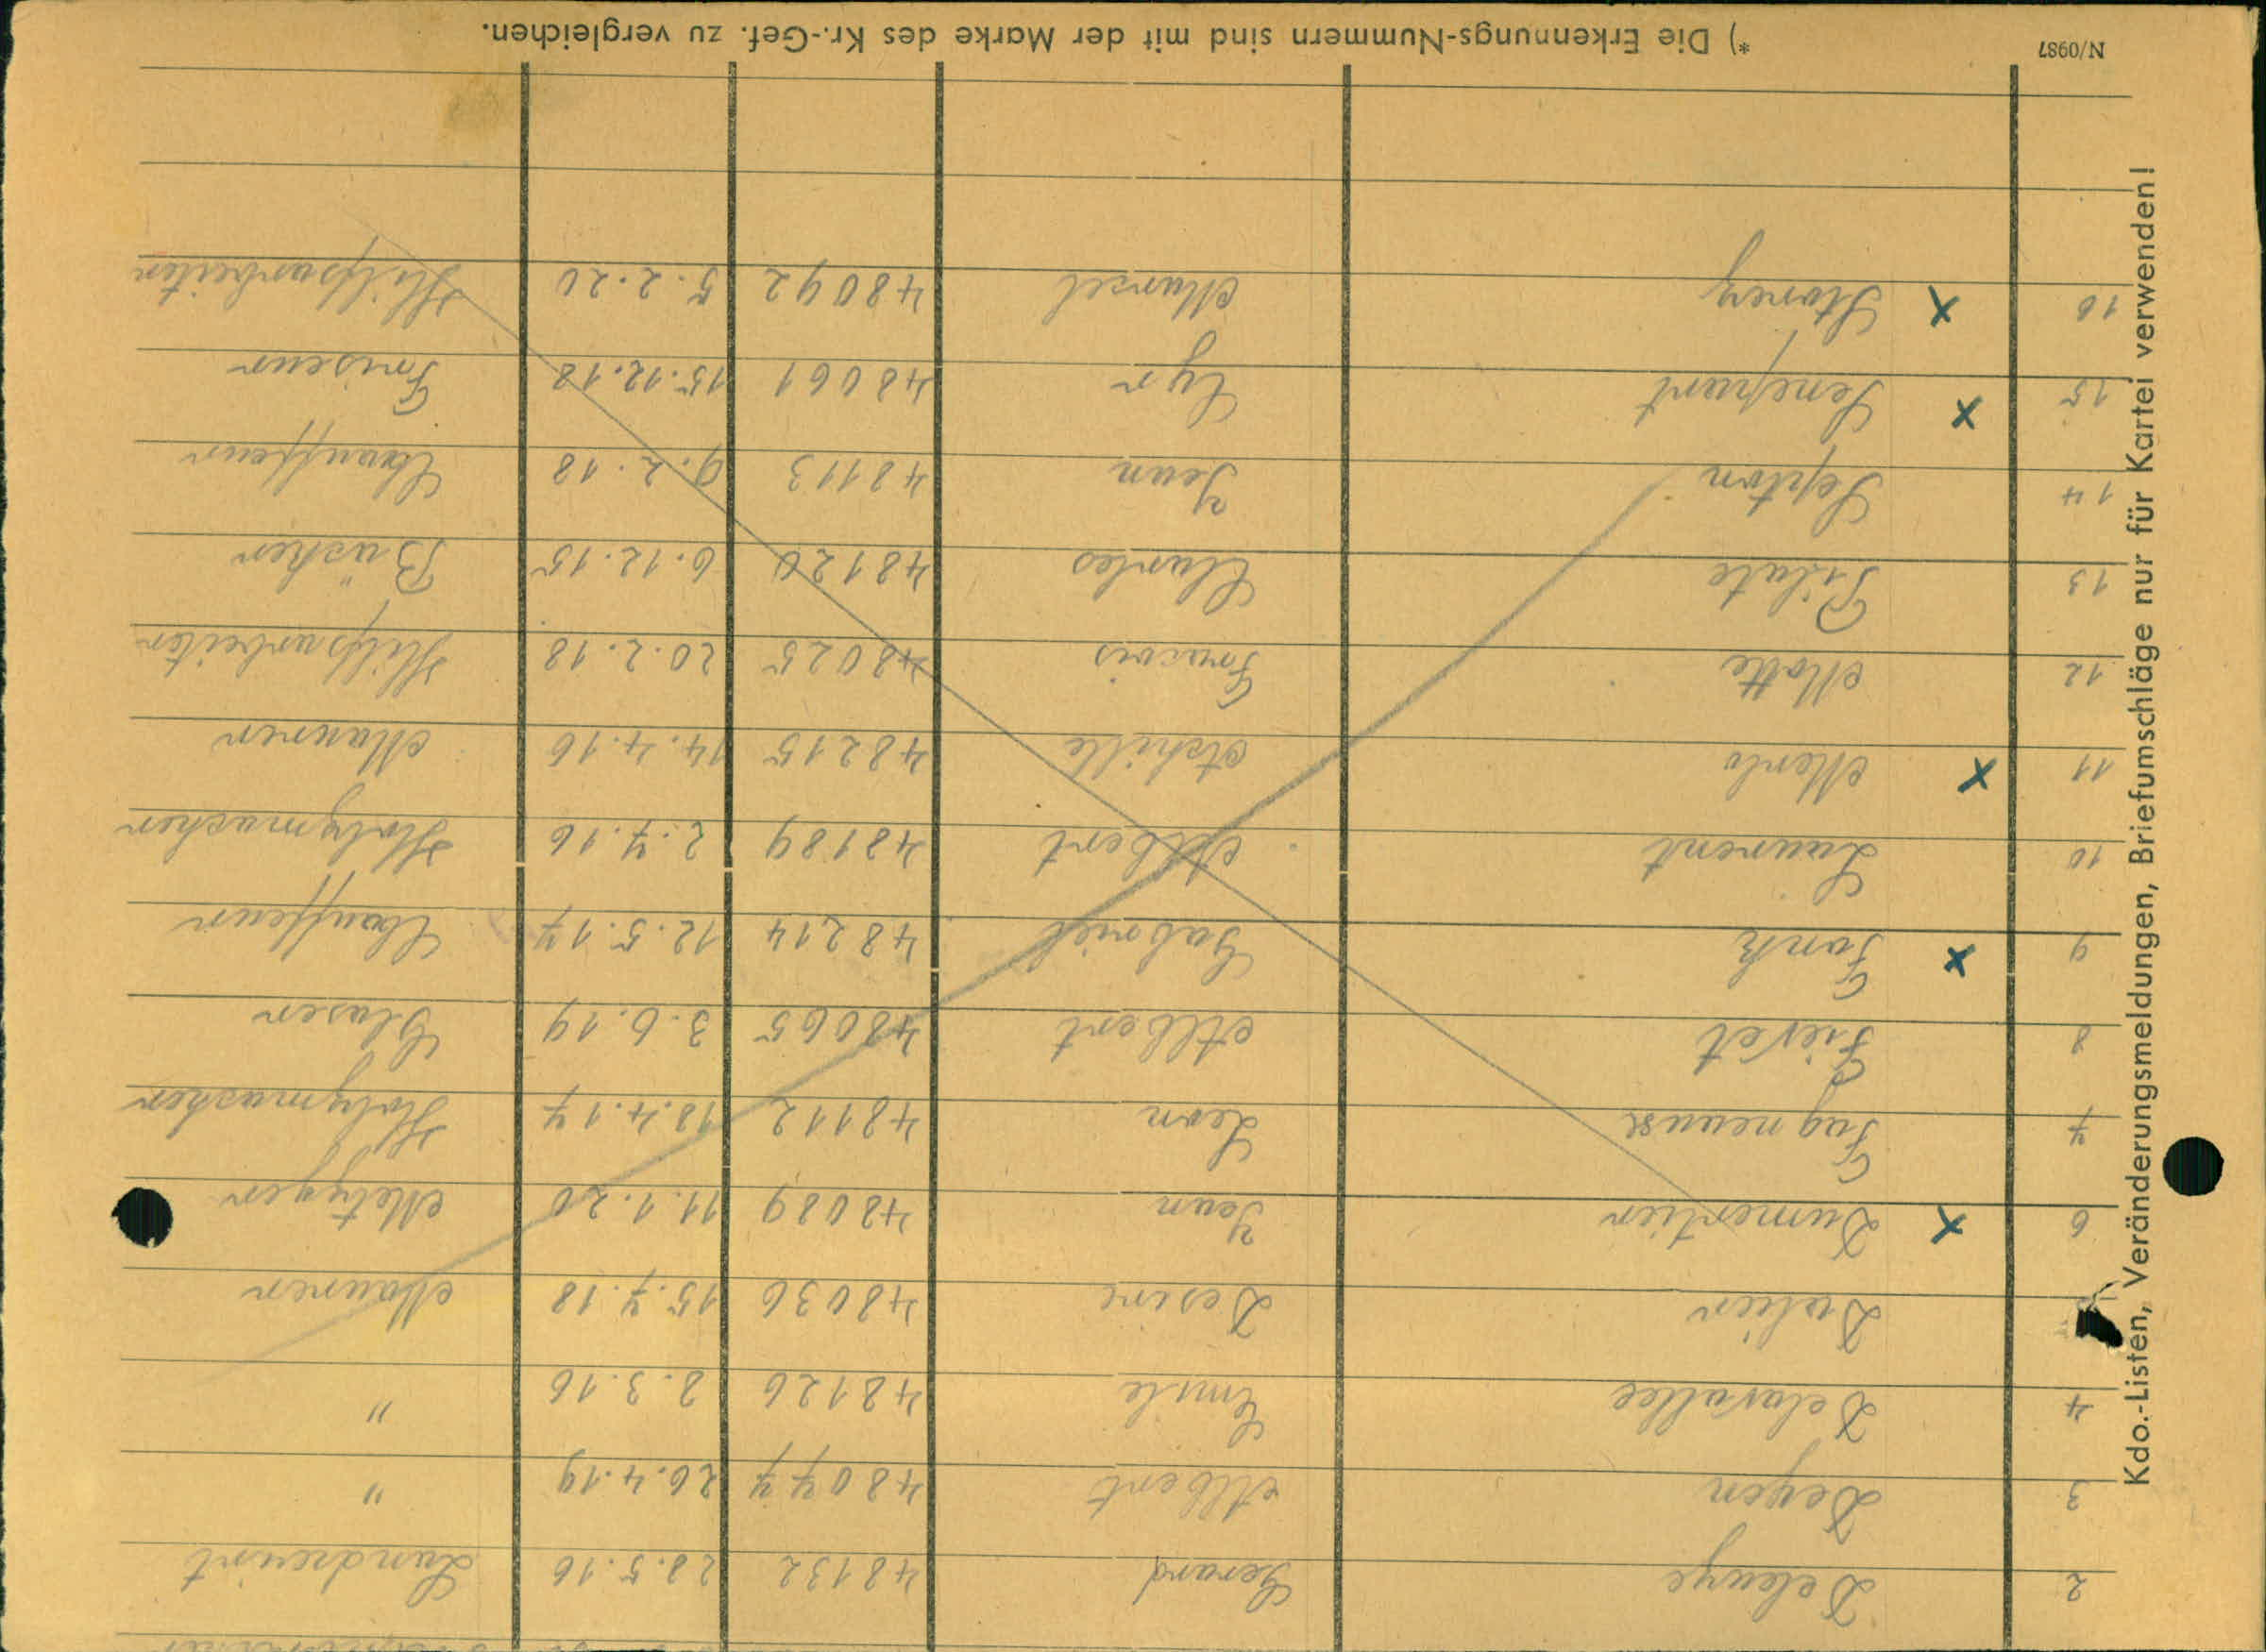 2 Deleuze Gerard 48132 28.5.16 Landwirt
3 Deyen Albert 48077 26.4.19 "
4 Delavallee Emile 48126 2.3.16 "
Dolien Desire 48036 15.7.18 Maurer
6 x Dumortier Jean 48089 11.1.20 Metzger
7 Fagneaux Leon 48112 18.4.17 Holzmacher
8 Fievet Albert 48065 3.6.19 Glaser
9 x Fonk Gabriel 48214 12.5.17 Chauffeur
10 Laurent Albert 48189 2.7.16 Holzmacher
11 x Merlo Achille 48215 14.4.16 Maurer
12 Motte Francois 48025 20.2.18 Hilfsarbeiter
13 Pilate Charles 48120 6.12.15 Bäcker
14 Septon Jean 48113 9.2.18 Chauffeur
15 x Senepart Cyr 48061 15.12.18 Friseur
16 x Storez Marsel 48092 5.2.20 Hilfsarbeiter
N/0987 *) Die Erkennungs-Nummern sind mit der Marke des Kr.-Gef. zu vergleichen.
Kdo.-Listen, Veränderungsmeldungen, Briefumschläge nur für Kartei verwenden!